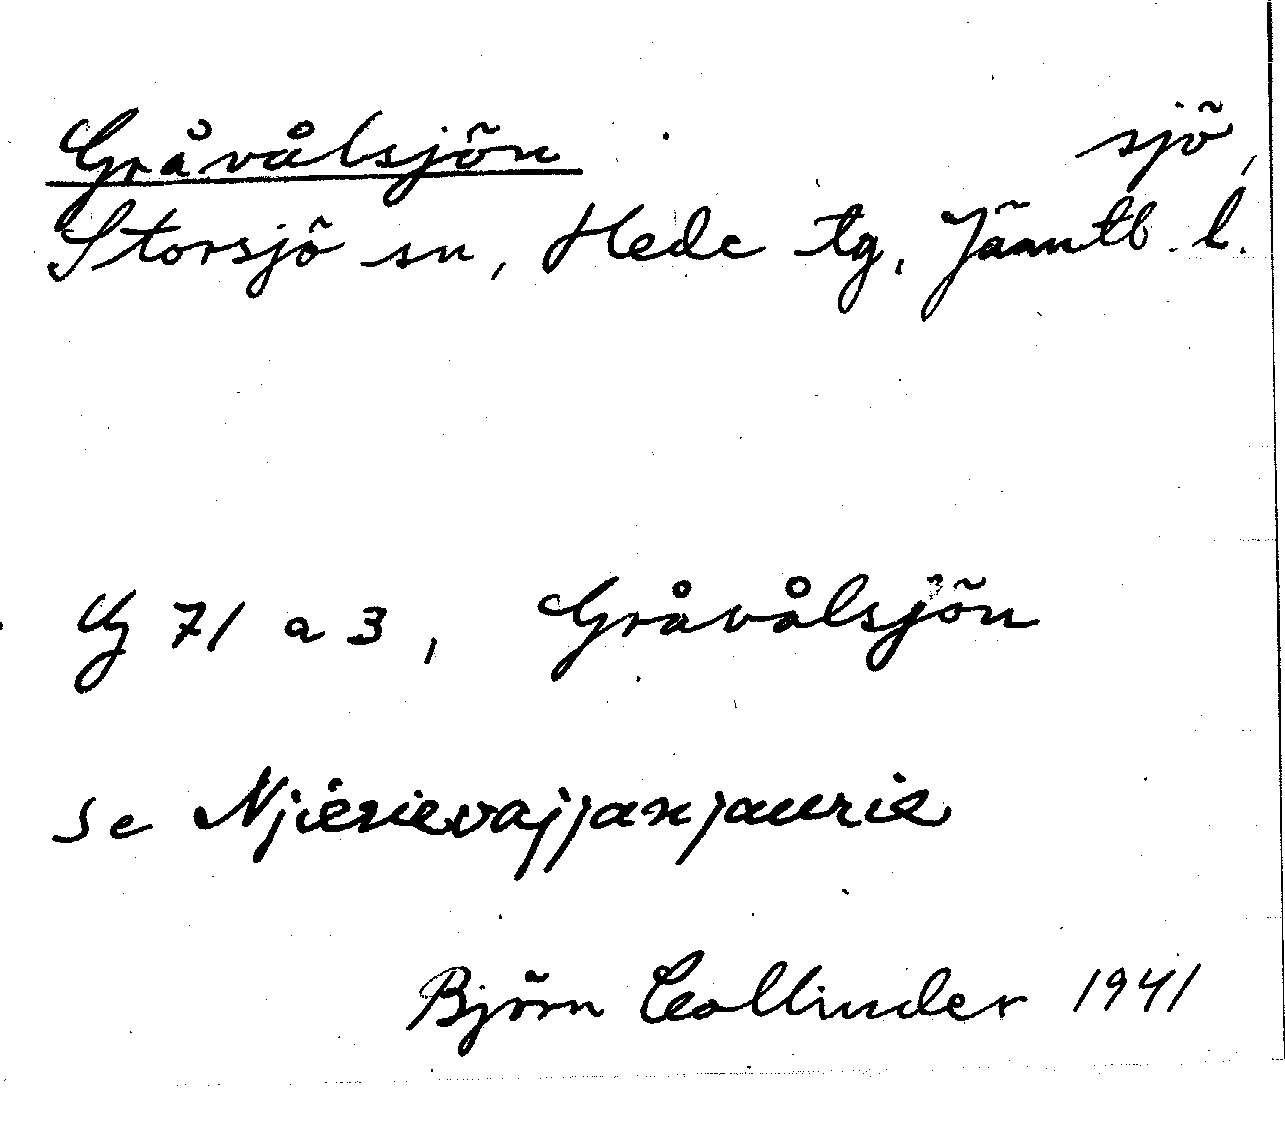 Gråvålsjön sjö,
Storsjö sn, Hede tg, Jämtl. l.
Eg 71 a 3, Gråvålsjön
se Njiesievajjanjaurie
Björn Collinder 1941